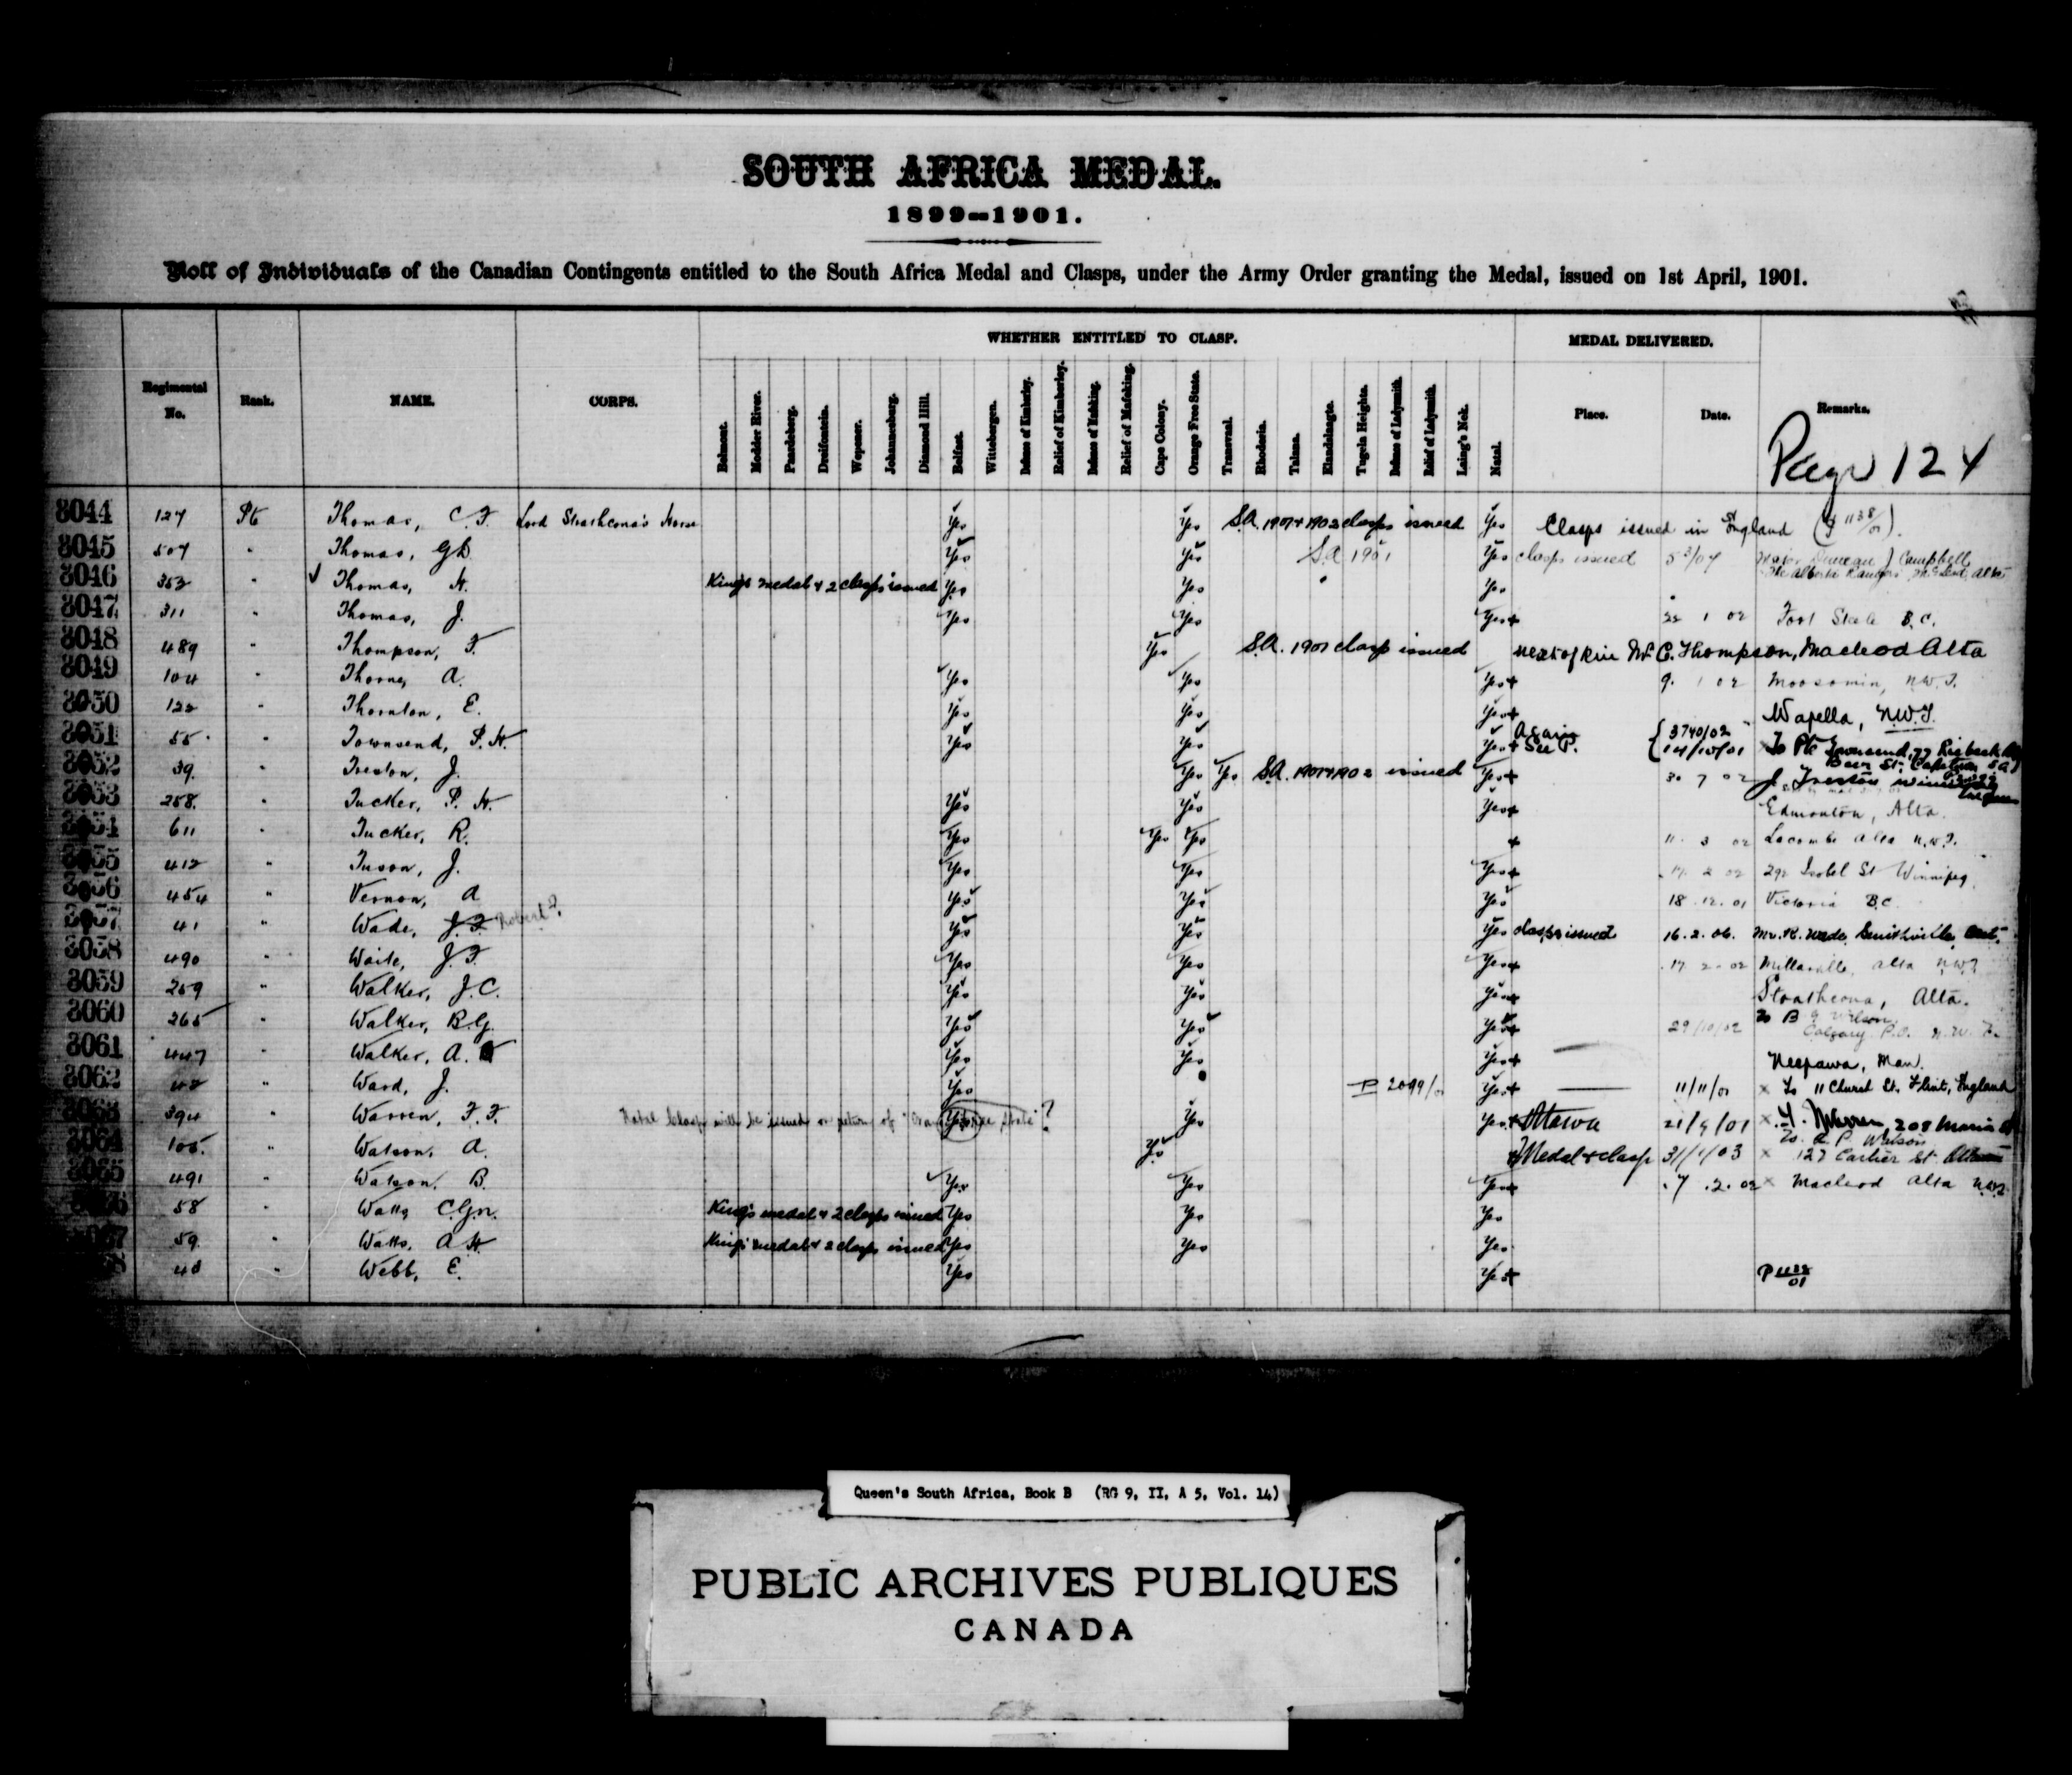 SOUTH AFRICA MEDAL.
1899-1901.
Roll of Individuals of the Canadian Contingents entitled to the South Africa Medal and Clasps, under the Army Order granting the Medal, issued on 1st April, 1901.
WHETHER ENTITLED TO CLASP. MEDAL DELIVERED.
Regimental No. Rank. NAME. CORPS. Belmont. Modder River. Paardeberg. Dreifontein. Wepener. Johannesburg. Diamond Hill. Belfast. Wittebergen. Defence of Kimberley. Relief of Kimberley. Defence of Mafeking. Relief of Mafeking. Cape Colony. Orange Free State. Transvaal. Rhodesia. Talana. Elandslaagte. Tugela Heights. Defence of Ladysmith. Relief of Ladysmith. Laing's Nek. Natal. Place. Date. Remarks.
Page 124
3044 127 Pte Thomas, C.F. Lord Strathcona's Horse Yes Yes S.A. 1901 & 1902 clasps issued Yes Clasps issued in England
3045 507 " Thomas, G.D. Yes Yes S.A 1901 Yes clasp issued Major Duncan J Campbell
The Alberta Rangers McLeod, Alta
3046 353 " Thomas, H. King's medal & 2 clasps issued Yes Yes Yes
3047 311 " Thomas, J. Yes Yes Yes + 22 1 02 Fort Steele B.C.
3048 489 " Thompson, F. Yes S.A. 1901 clasp issued next of kin Mr C. Thompson, Macleod Alta
3049 104 " Thorne, A. Yes Yes Yes + 9. 1 02 Moosomin, N.W.T.
3050 122 " Thornton, E. Yes Yes Yes + Wapella, N.W.T.
3051 55 " Townsend, P.H. Yes Yes Yes + Again See P. { 3740/02 14/10/01 x To Pte Townsend, 77
3052 39 " Treston, J. Yes Yes S.A. 1901 & 1902 issued Yes + 30 7 02 J. Treston Winnipeg
3053 258 " Tucker, P. H. Yes Yes Yes + Edmonton, Alta.
611 " Tucker, R. Yes Yes Yes + 11. 3 02 Lacombe Alta N.W.T.
3055 412 " Tuson, J. Yes Yes Yes + 292 Isobel St Winnipeg
3056 454 " Vernon, A Yes Yes Yes 18.12.01 Victoria B.C.
3057 41 " Wade, J.F. Robert? Yes Yes Yes clasps issued 16.2.06. Mr. R. Wade, Smithville, Ont.
3058 490 " Waite, J.F. Yes Yes Yes + 17 2.02 Millarville, Alta N.W.T
3059 259 " Walker, J.C. Yes Yes Yes + Strathcona, Alta.
3060 265 " Walker, R.G. Yes Yes Yes + 29/10/02 To B G Wilson
Calgary P.O. N.W.T.
3061 447 " Walker, A. Yes Yes Yes + Neepawa, Man.
3062 42 " Ward, J. Yes P 2099/01 Yes + 11/11/01 x To 11 Church St. Flint, England
3063 394 " Warren, F.F. Natal Clasp will be issued on return of "Orange Free State"? Yes Yes Yes + Ottawa 21/9/01 x F. Warren, 208 Maria St
3064 105 " Watson, A. Yes + Medal & clasp 31/1/03 x To A. P. Watson
127 Cartier St.
3065 491 " Watson, B. Yes Yes Yes + 7.2.02 x Macleod Alta N.W.T.
58 " Watts, C.G.N. King's medal & 2 clasps issued Yes Yes Yes
59 " Watts, A H King's medal & 2 clasps issued Yes Yes Yes
" Webb, E. Yes Yes +
Queen's South Africa, Book B (RG 9, II, A 5, Vol. 14)
PUBLIC ARCHIVES PUBLIQUES
CANADA